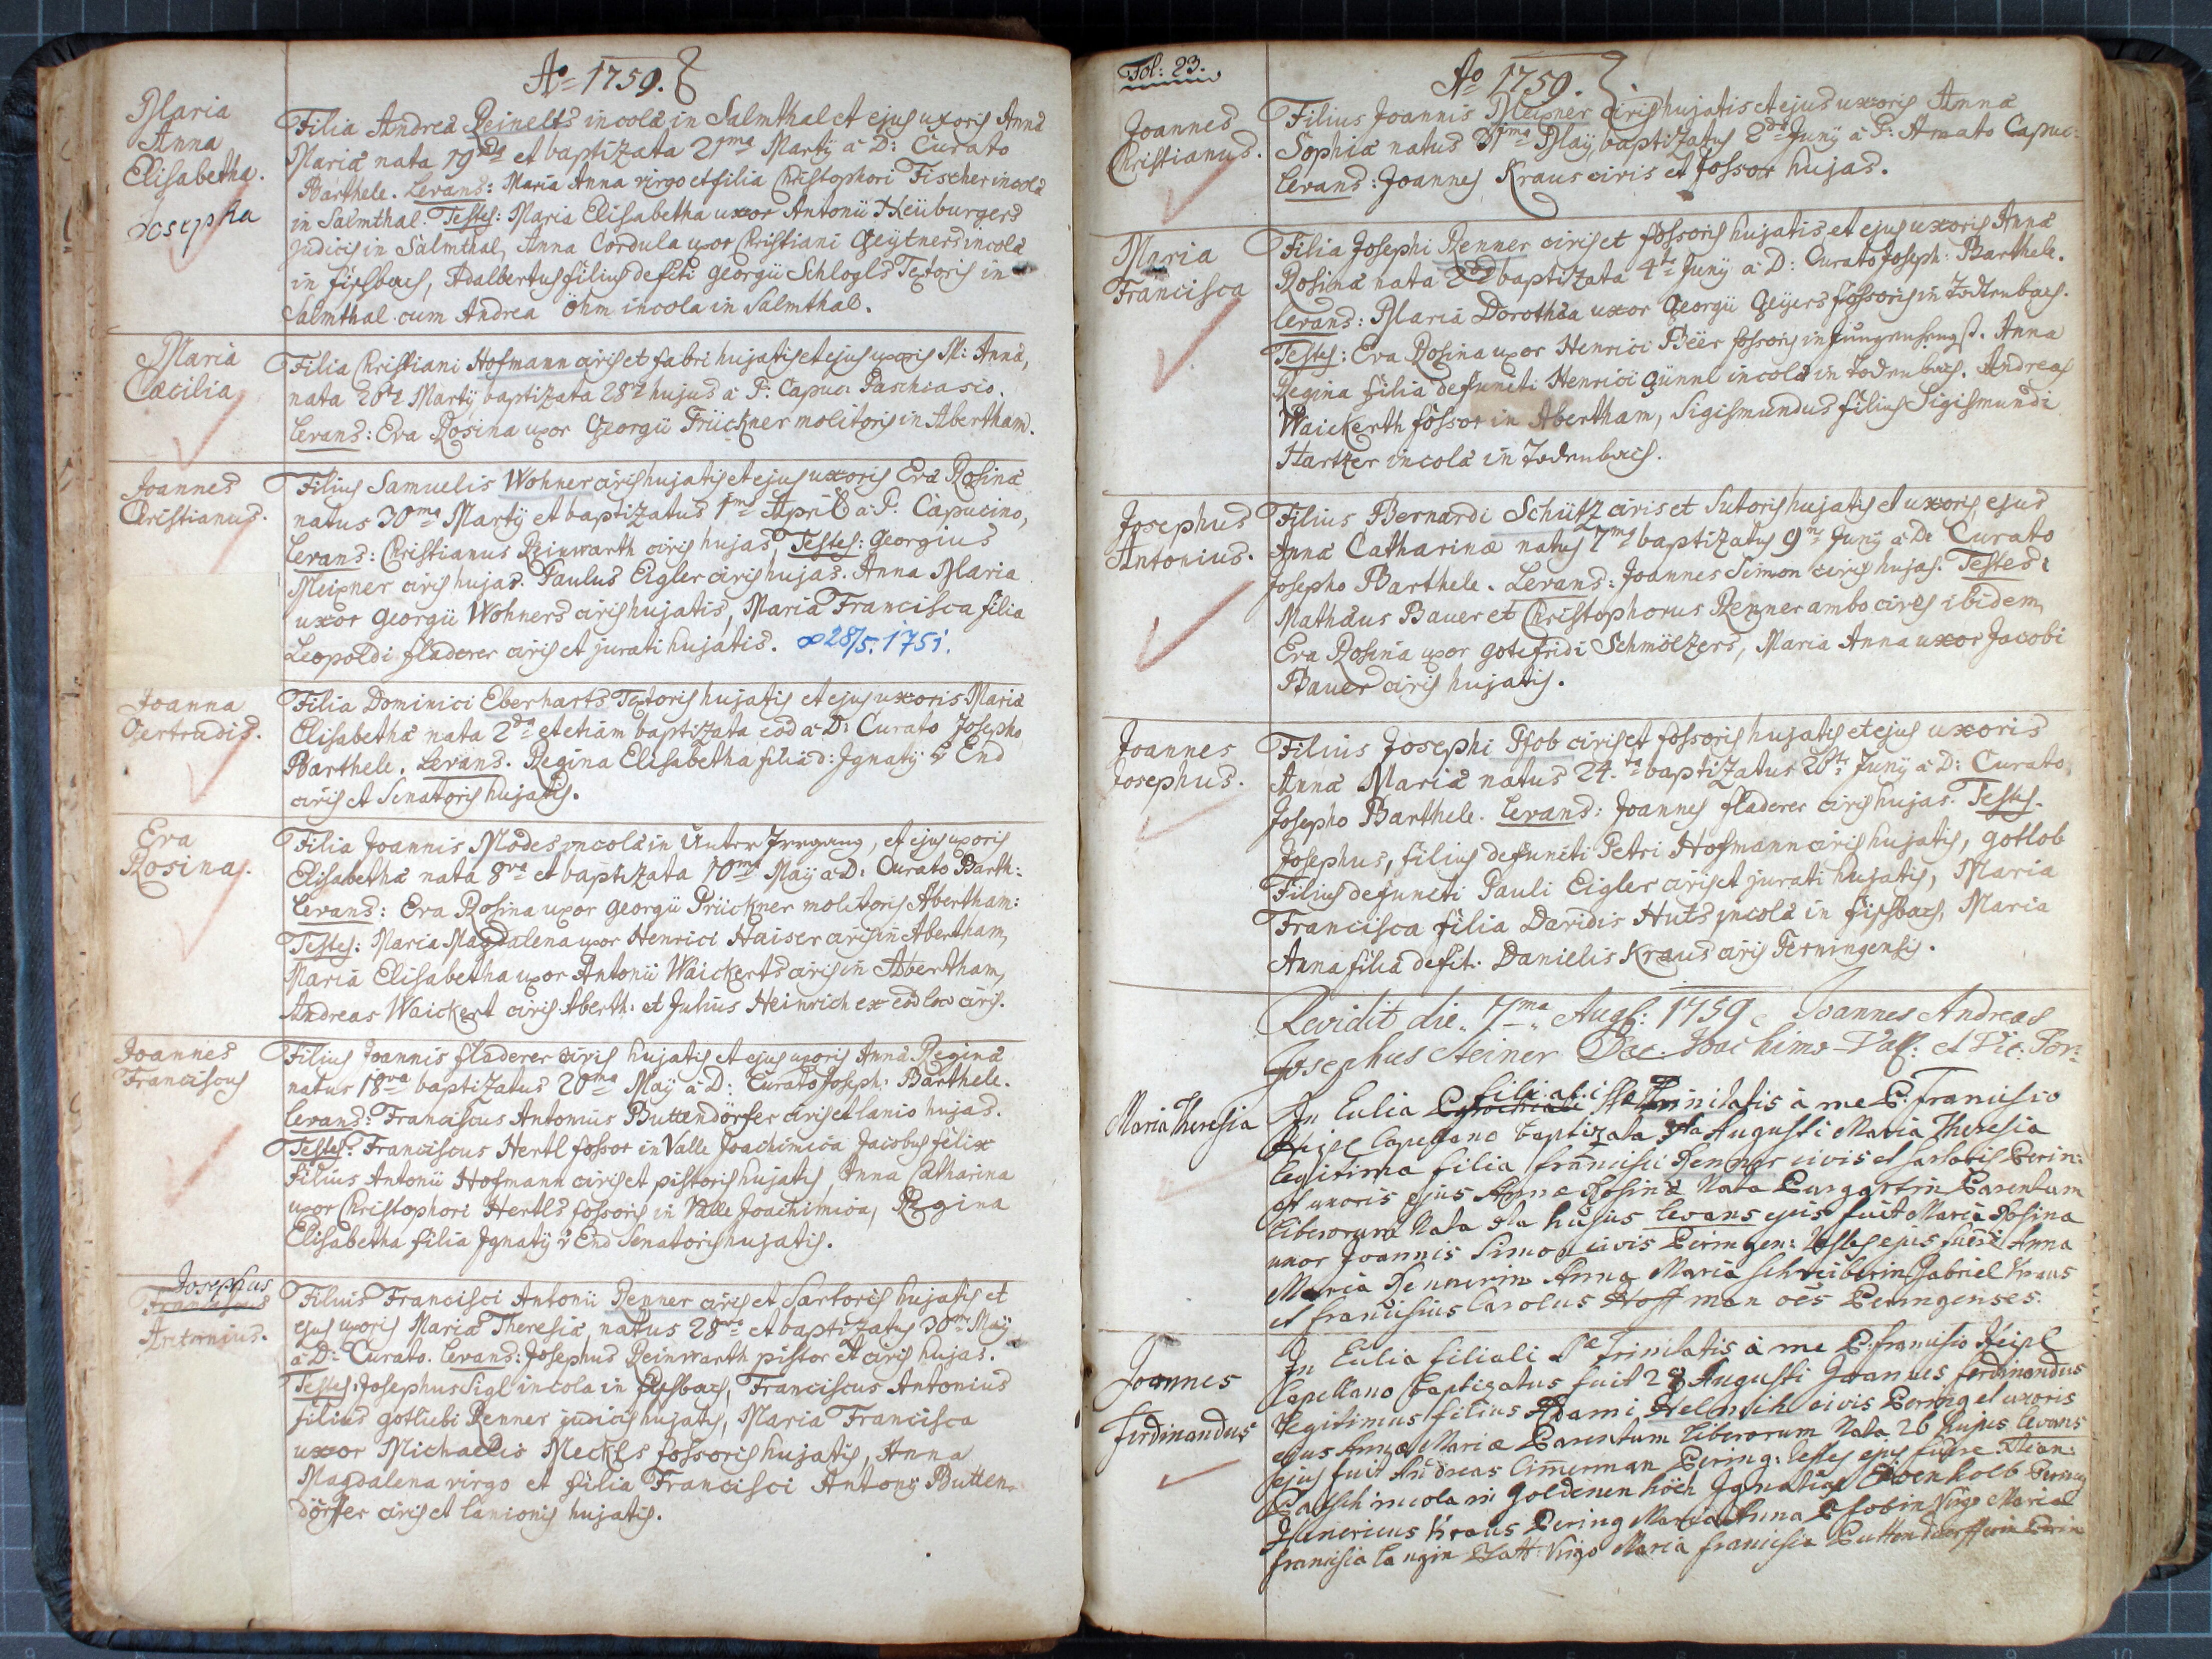 Aō 1759.
Maria
Anna
Elisabetha.
Josepha
Filia Andreā Peinelts incolā in Salmthal et ejus uxoris Annā
Mariā nata 19na et baptizata 21ma Martÿ â D: Curato
Barthele. Levans: Maria Anna virgo et filia Christophori Fischer incolā
in Salmthal. Testes: Maria Elisabetha uxor Antonii Neüburgers
judicis in Salmthal, Anna Cordula uxor Christiani Geÿtners incolā
in fischbach, Adalbertus filius defti Georgii Schlogls Textoris in
Salmthal cum Andrea Öhm incola in Salmthal.
Maria
Cæcilia
Filia Christiani Hofmann civis et fabri hujatis et ejus uxoris M: Annā,
nata 26ta Martÿ baptizata 28va hujus â P: Capuc: Paschasio.
Levans: Eva Rosina uxor Georgii Früickner molitoris in Abertham.
Joannes
Christianus.
Filius Samuelis Wohner civis hujatis et ejus uxoris Evā Rosinā
natus 30ma Martÿ et baptizatus 1ma April â P. Capucino,
Levans: Christianus Reinwarth civis hujas, Testes: Georgius
Meixner civis hujas. Paulus Eigler civis hujas. Anna Maria
uxor Georgii Wohners civis hujatis, Maria Francisca filia
Leopoldi fladerer civis et jurati hujatis. ∞ 28/5. 1751.
Joanna
Gertrudis.
Filia Dominici Eberharts Textoris hujatis et ejus uxoris Mariā
Elisabethā nata 2da et etiam baptizata eod â D: Curato Josepho
Barthele. Levans. Regina Elisabetha filia d: Jgnatÿ v End
civis et Senatoris hujatis.
Eva
Rosina.
Filia Joannis Modes incolā in Unter Jrrgang, et ejus uxoris
Elisabethā nata 8va et baptizata 10ma Maÿ â D: Curato Barth:
Levans: Eva Rosina uxor Georgii Prückner molitoris Abertham:
Testes: Maria Magdalena uxor Henrici Haiser civis in Abertham,
Maria Elisabetha uxor Antonii Waickerts civis in Abertham,
Andreas Waickert civis Aberth: et Julius Heinrich ex eod loco civis.
Joannes
Franciscus
Filius Joannis fladerer civis hujatis et ejus uxoris Annā Reginā
natus 18va baptizatus 20ma Maÿ â D: Curato Joseph: Barthele.
Levans: Franciscus Antonius Buttendörfer civis et lanio hujas.
Testes: Franciscus Hertl fossor in Valle Joachimica Jacobus felix
filius Antonii Hofmann civis et pistoris hujatis, Anna Catharina
uxor Christophori Hertls fossoris in Valle Joachimica, Regina
Elisabetha filia Jgnatÿ v End Senatoris hujatis.
Josephus
Franciscus
Antonius.
Filius Francisci Antonii Renner civis et Sartoris hujatis et
ejus uxoris Mariā Theresiā, natus 28va et baptizatus 30ma Maÿ
â D: Curato. Levans: Josephus Reinwarth pistor et civis hujas.
Testes: Josephus Sigl incola in fischbach, Franciscus Antonius
filius Gotliebi Renner judicis hujatis, Maria Francisca
uxor Michaelis Meckls fossoris hujatis, Anna
Magdalena virgo et filia Francisci Antonÿ Butten-
dörfer civis et lanionis hujatis.
Fol: 23.
Aō 1759.
Joannes
Christianus.
Filius Joannis Meixner civis hujatis et ejus uxoris Annā
Sophiā natus 31ma Maÿ, baptizatus 2da Junÿ â P: Amato Capuc:
Levans: Joannes Kraus civis et fossor hujas.
Maria
Francisca
Filia Josephi Renner civis et fossoris hujatis et ejus uxoris Annā
Rosinā nata 2da baptizata 4ta Junÿ â D: Curato Joseph: Barthele.
Levans: Maria Dorothēa uxor Georgii Geÿers fossoris in Todtenbach.
Testes: Eva Rosina uxor Henrici Beër fossoris in Jungenhengst. Anna
Regina filia defuncti Henrici Günnl incolā in Todenbach. Andreas
Waickerth fossor in Abertham, Sigismundus filius Sigismundi
Hartzer incolā in Todenbach.
Josephus
Antonius.
Filius Bernardi Schütz civis et Sutoris hujatis et uxoris ejus
Annā Catharinæ natus 7ma baptizatus 9na Junÿ â D: Curato
Josepho Barthele. Levans: Joannes Simon civis hujas. Testes:
Mathāus Bauer et Christophorus Renner ambo cives ibidem,
Eva Rosina uxor Gotefridi Schmöltzers, Maria Anna uxor Jacobi
Bauer civis hujatis.
Joannes
Josephus.
Filius Josephi Pfob civis et fossoris hujatis et ejus uxoris
Annā Mariā natus 24.ta baptizatus 26ta Junÿ â D: Curato
Josepho Barthele. Levans: Joannes fladerer civis hujas. Testes.
Josephus, filius defuncti Petri Hofmann civis hujatis, Gotlob
Filius defuncti Pauli Eigler civis et jurati hujatis, Maria
Francisca filia Davidis Huts incolā in fischbach, Maria
Anna filia defit. Danielis Kraus civis Perningensis.
Revidit die 7ma Augs: 1759 Joannes Andreas
Josephus Steiner Dec: Joachims-Vall: et Vic: For:
Maria Theresia
In Eulia filiali SSæ Trinitatis à me P. Francisco
Keipl Capellano baptizata Augusti Maria Theresia
legitima filia francisci Renner civis et sartoris Perin:
et uxoris ejus Annæ Rosinæ Nata Purgartin Parentum
liberorum Nata hujus levans ejus fuit Maria Rosina
uxor Joannis Simon civis Peringen: testes ejus fuere Anna
Maria Rennerin Anna Maria Schreiberin Gabriel Kraus
et franciscus Carolus Hoffman oēs Peringenses.
Joannes
Ferdinandus
In Eulia filiali SSæ Trinitatis à me P. francisco Keipl
Capellano baptizatus fuit 28 Augusti Joannes ferdinandus
legitimus filius Adami Helmich civis Pering et uxoris
ejus Annæ Mariæ Parentum liberorum Nata 26 hujus levans
ejus fuit Andreas Cimerman Pering: testes ejus fuere
Patsch incola in Goldenen höch Ignatius Pering
Kraus Pering Maria Anna Pfobin Virgo Maria
francisca Langin Virgo Maria francisca Puttendoerfferin Perin